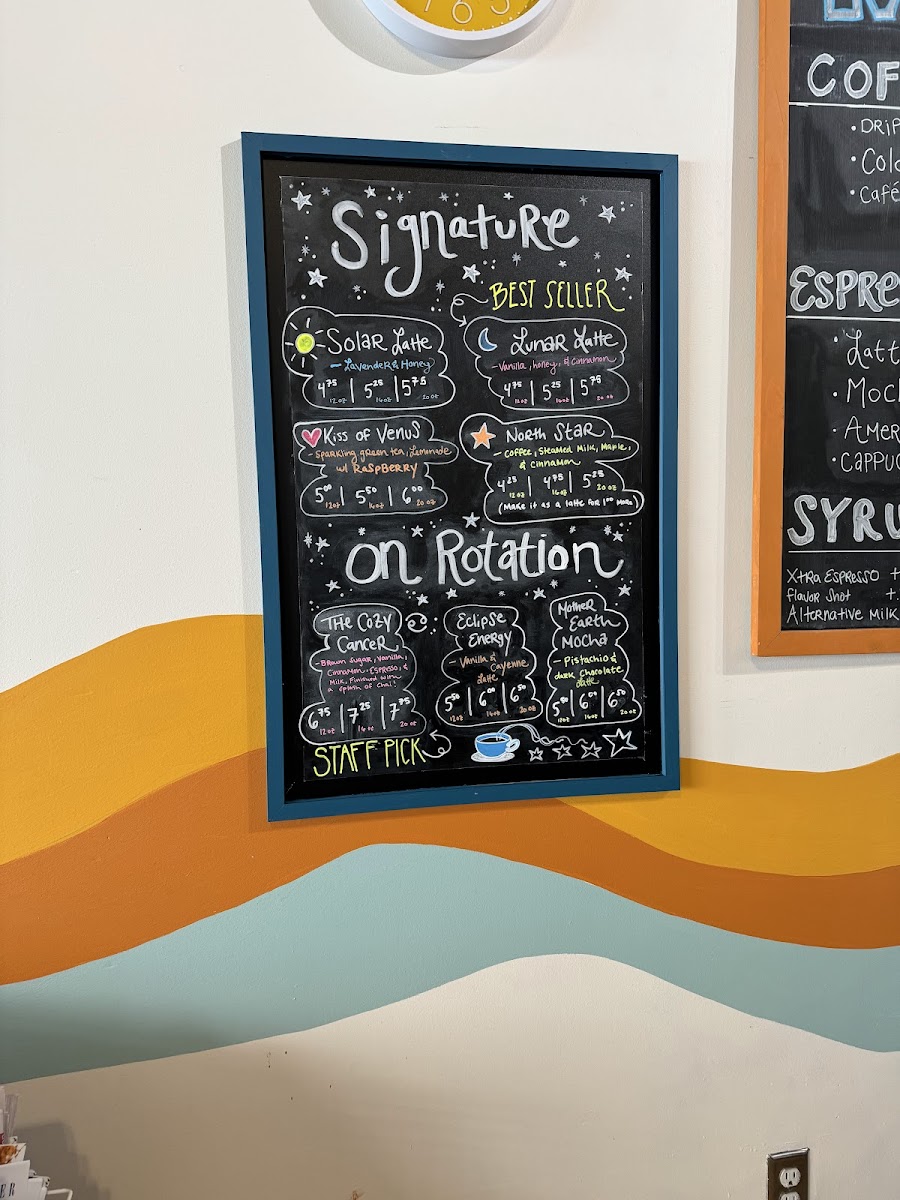 Signature
BEST SELLER
Solar Latte
- Lavender & Honey
4⁷⁵ | 5²⁵ | 5⁷⁵
12oz 16oz 20oz
Lunar Latte
- Vanilla, honey, & Cinnamon
4⁷⁵ | 5²⁵ | 5⁷⁵
12oz 16oz 20oz
Kiss of Venus
- Sparkling green tea, Lemonade
w/ Raspberry
5⁰⁰ | 5⁵⁰ | 6⁰⁰
12oz 16oz 20oz
North Star
- Coffee, Steamed Milk, Maple,
& Cinnamon
4²⁵ | 4⁷⁵ | 5²⁵
12oz 16oz 20oz
(Make it as a latte for 1⁰⁰ more)
On Rotation
The Cozy
Cancer
- Brown Sugar, Vanilla,
Cinnamon. Espresso, &
Milk, Finished with
a splash of Chai!
6⁷⁵ | 7²⁵ | 7⁷⁵
12oz 16oz 20oz
STAFF PICK
Eclipse
Energy
- Vanilla &
Cayenne
Latte
5⁵⁰ | 6⁰⁰ | 6⁵⁰
12oz 16oz 20oz
Mother
Earth
Mocha
- Pistachio &
dark Chocolate
Latte
5⁵⁰ | 6⁰⁰ | 6⁵⁰
12oz 16oz 20oz
COF
• Drip
• Cold
• Café
Espre
• Latt
• Moch
• Amer
• Cappuc
SYRU
Xtra Espresso +
Flavor Shot +.
Alternative Milk